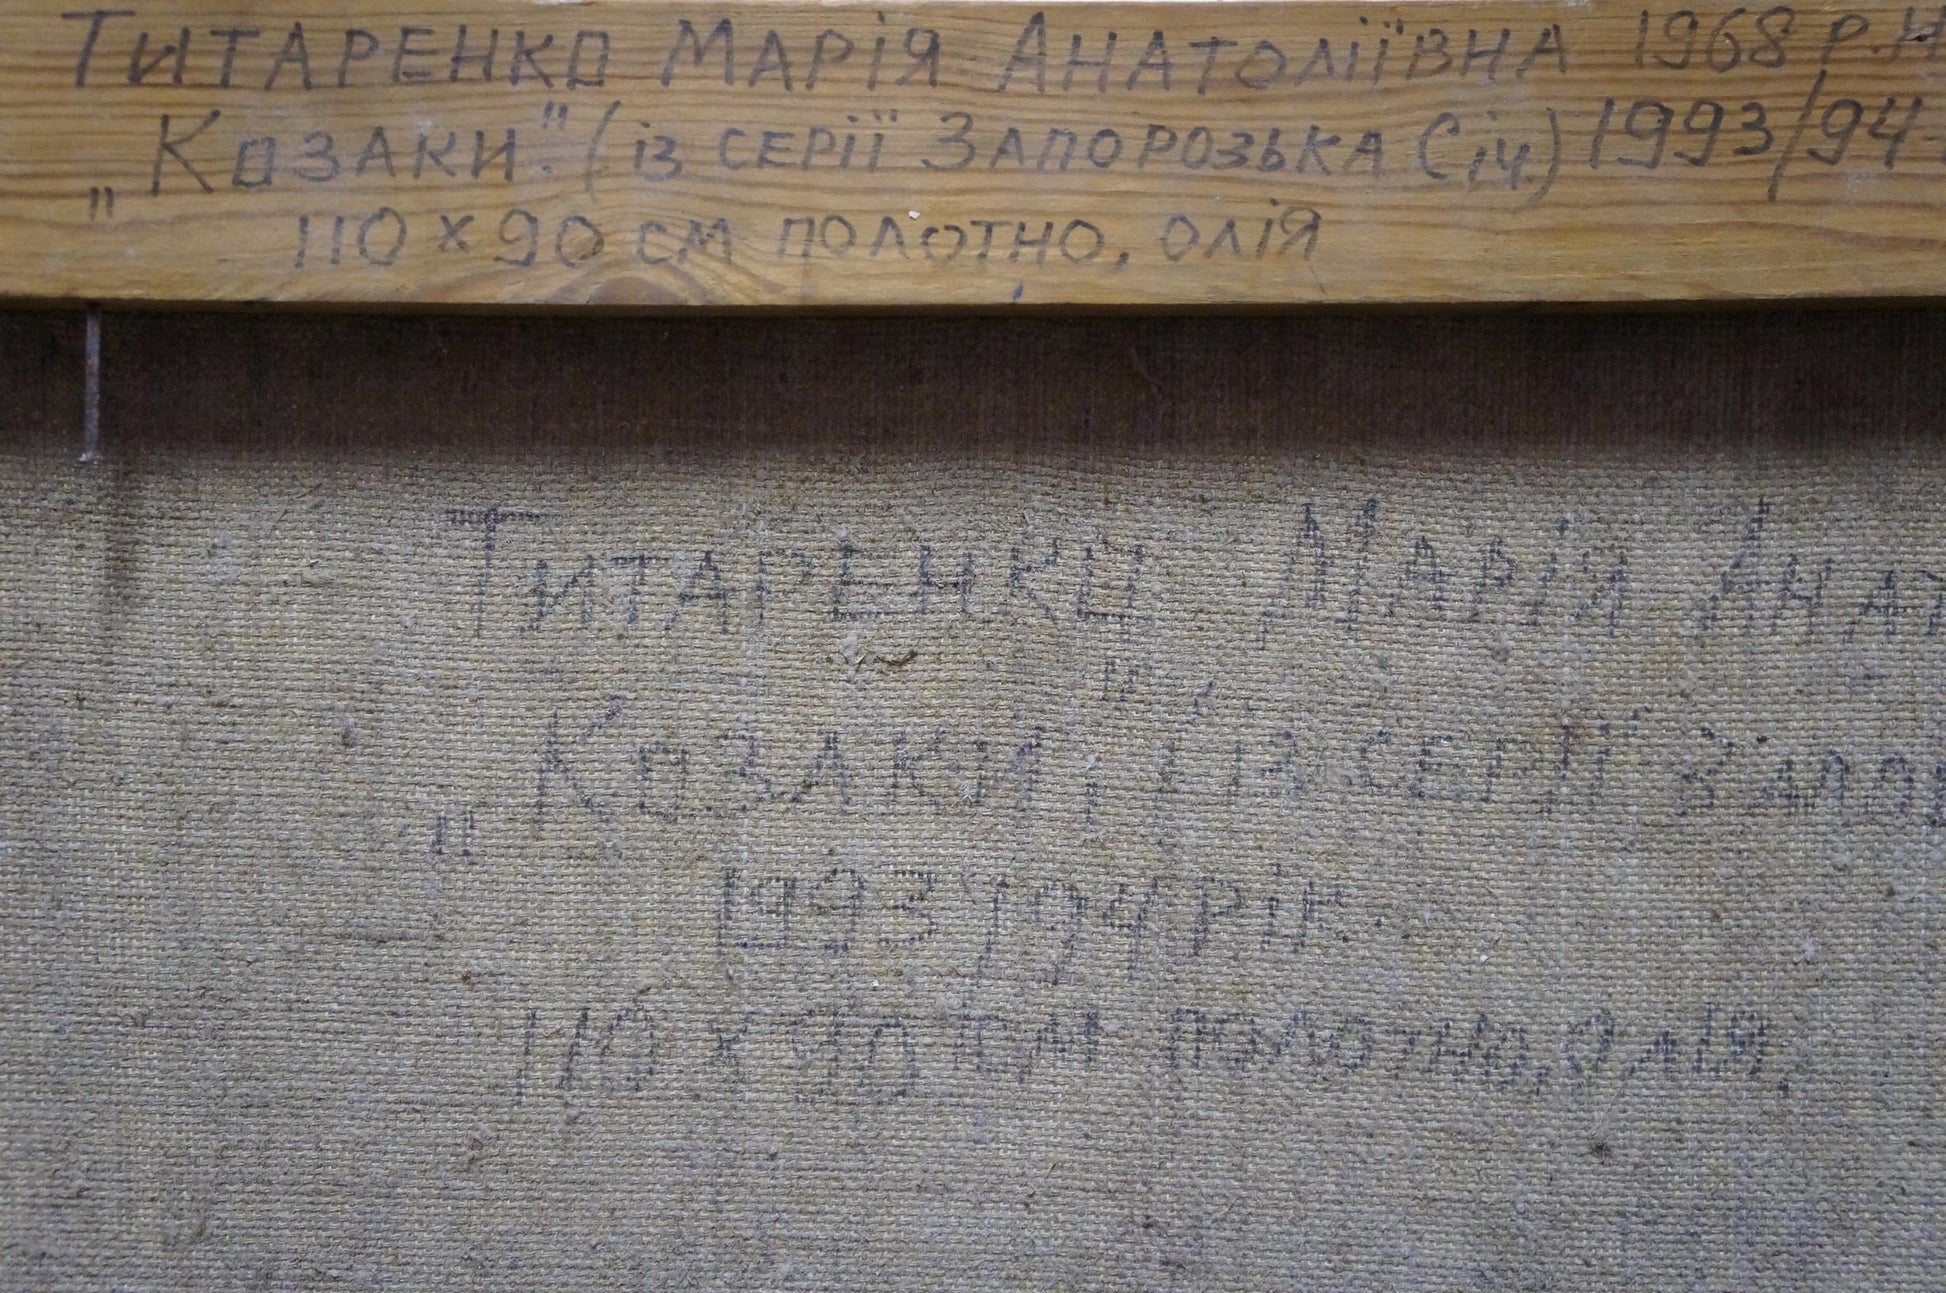 Титаренко Марія Анатоліївна 1968 р.н
„Козаки." (із серії Запорозька Січ.) 1993/94
110 х 90 см полотно, олія
Титаренко Марія Анат
„Козаки," (із серії Запор
1993/94 рік.
110 х 90 см полотно, олія,